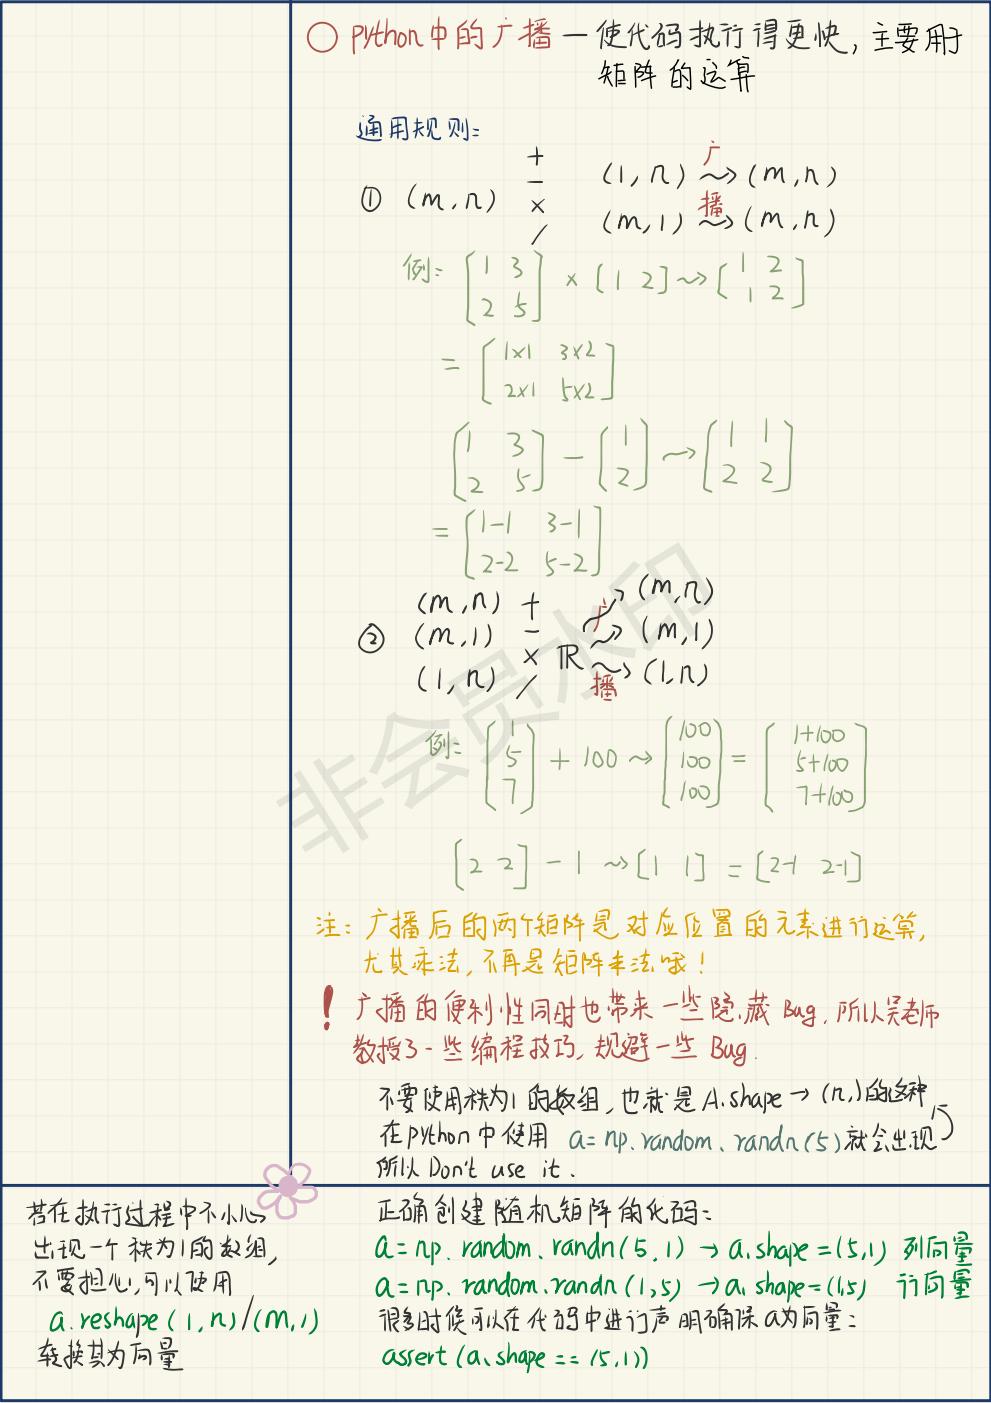 ○ python中的广播 — 使代码执行得更快,主要用于
矩阵的运算
通用规则:
① (m,n) + - × / (1,n) 广播 ⇝ (m,n)
(m,1) ⇝ (m,n)
例: [1 3; 2 5] × [1 2] ⇝ [1 2; 1 2]
= [1×1 3×2; 2×1 5×2]
[1 3; 2 5] - [1; 2] ⇝ [1 1; 2 2]
= [1-1 3-1; 2-2 5-2]
② (m,n) + - × / ℝ 广播 ⇝ (m,n)
(m,1) ⇝ (m,1)
(1,n) ⇝ (1,n)
例: [1; 5; 7] + 100 ⇝ [100; 100; 100] = [1+100; 5+100; 7+100]
[2 2] - 1 ⇝ [1 1] = [2-1 2-1]
注: 广播后的两个矩阵是对应位置的元素进行运算,
尤其乘法,不再是矩阵乘法哦!
! 广播的便利性同时也带来一些隐藏Bug,所以吴老师
教授了一些编程技巧,规避一些Bug.
不要使用秩为1的数组,也就是A.shape → (n,)的这种
在python中使用 a=np.random.randn(5)就会出现
所以Don't use it.
正确创建随机矩阵的代码:
a=np.random.randn(5,1) → a.shape=(5,1) 列向量
a=np.random.randn(1,5) → a.shape=(1,5) 行向量
很多时候可以在代码中进行声明确保a为向量:
assert(a.shape==(5,1))
若在执行过程中不小心
出现一个秩为1的数组,
不要担心,可以使用
a.reshape(1,n)/(m,1)
转换其为向量
非会员水印